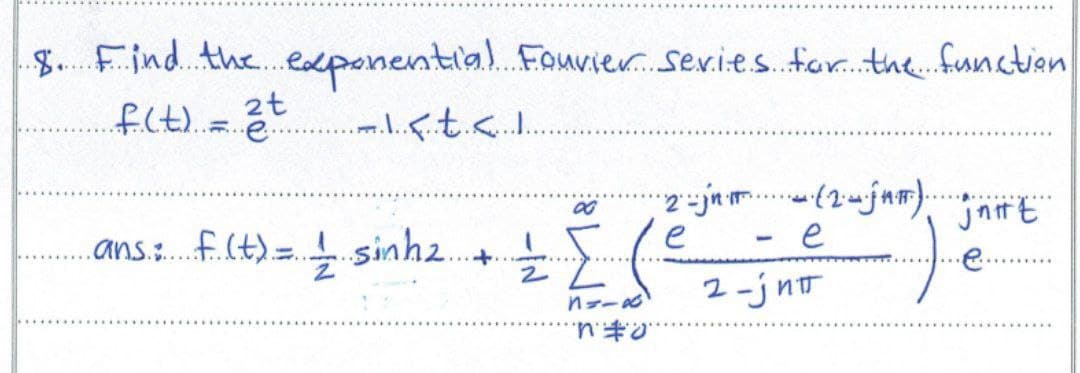 8. Find the exponential Fourier series for the function
f(t) = e^{2t} -1 < t < 1
ans: f(t) = \frac{1}{2} sinh2 + \frac{1}{2} \sum_{n=-∞, n≠0}^{∞} ( \frac{e^{2-jnπ} - e^{-(2-jnπ)}}{2-jnπ} ) e^{jnπt}